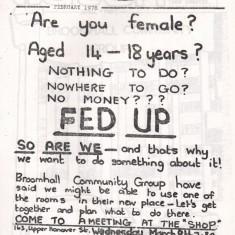 FEBRUARY 1978
Are you female?
Aged 14 – 18 years?
NOTHING TO DO?
NOWHERE TO GO?
NO MONEY???
FED UP
SO ARE WE – and thats why
we want to do something about it!
Broomhall Community Group have
said we might be able to use one of
the rooms in their new place – Let's get
together and plan what to do there.
COME TO A MEETING AT THE "SHOP"
Upper Hanover St. Wednesday March